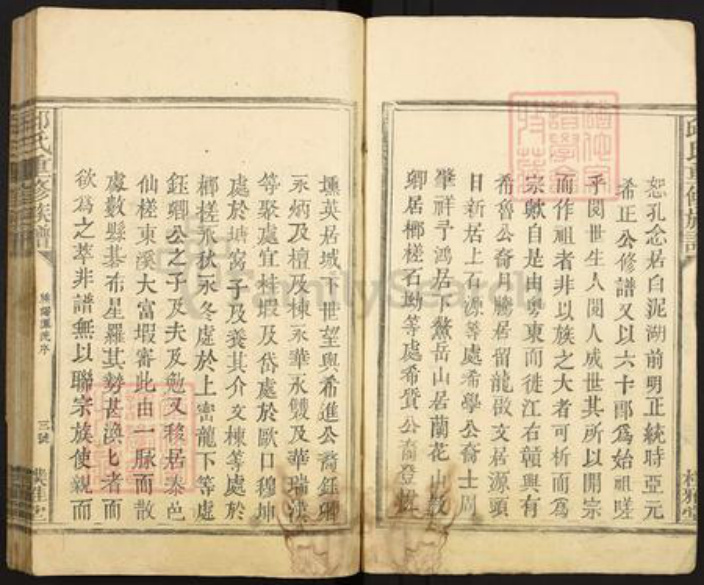 恕孔念居白泥湖前明正統時亞元
希正公修譜又以六十郎爲始祖嗟
乎閱世生人閱人成世其所以開宗
而作祖者非以族之大者可析而爲
宗歟自是由粵東而徙江右贛興有
希魯公裔月騰居留龍啟文居源頭
日新居上石源等處希學公裔士周
肇祥子鴻居下鰲岳山居蘭花山毅
卿居榔槎石坳等處希賢公裔登
壎英居域下世望與希進公裔鈺瑯
永炳及檀及棟永華永雙及華瑞漢
等聚處宜桂瑕及岱處於歐口穆坤
處於塘窩子及養其介文棟等處於
榔槎永秋永冬處於上宻龍下等處
鈺卿公之子及夫及勉又移居泰邑
仙槎東溪大富瑕審此由一脈而散
處數縣棊布星羅其勢甚渙匕者而
欲爲之萃非譜無以聯宗族使親而
邱氏重修族譜
三號
邱氏重修族譜
FamilySearch